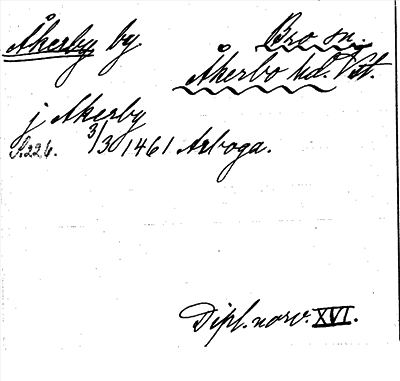 Åkerby by Bro sn.
Åkerbo hd. Vstm.
j Akerby
S. 226. 3/3 1461 Arboga.
Dipl. norv. XVI.